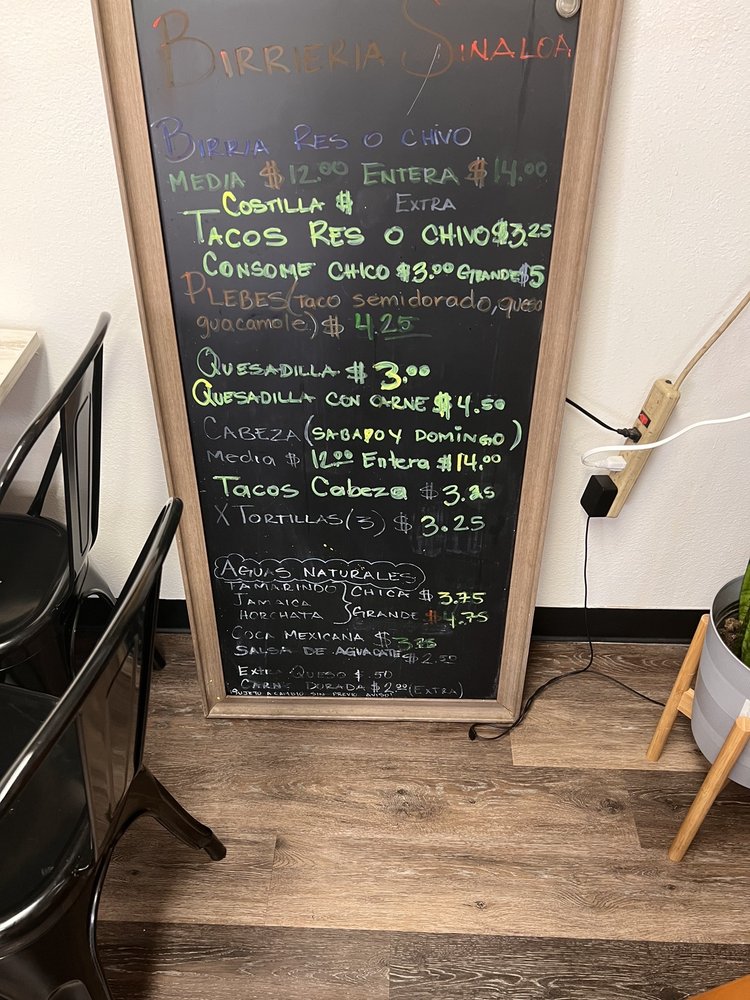 BIRRIERIA SINALOA
BIRRIA RES O CHIVO
MEDIA $12.00 ENTERA $14.00
COSTILLA $ EXTRA
TACOS RES O CHIVO $3.25
CONSOME CHICO $3.00 GRANDE $5
PLEBES (Taco semidorado, queso
guacamole) $ 4.25
QUESADILLA $ 3.00
QUESADILLA CON CARNE $ 4.50
CABEZA (SABADO Y DOMINGO)
Media $ 12.00 Entera $14.00
Tacos Cabeza $ 3.25
X TORTILLAS (3) $ 3.25
AGUAS NATURALES
TAMARINDO CHICA $ 3.75
JAMAICA
HORCHATA GRANDE $ 4.75
COCA MEXICANA $ 3.25
SALSA DE AGUACATE $ 2.50
EXTRA QUESO $.50
CARNE DORADA $2.00 (EXTRA)
SUJETO A CAMBIO SIN PREVIO AVISO